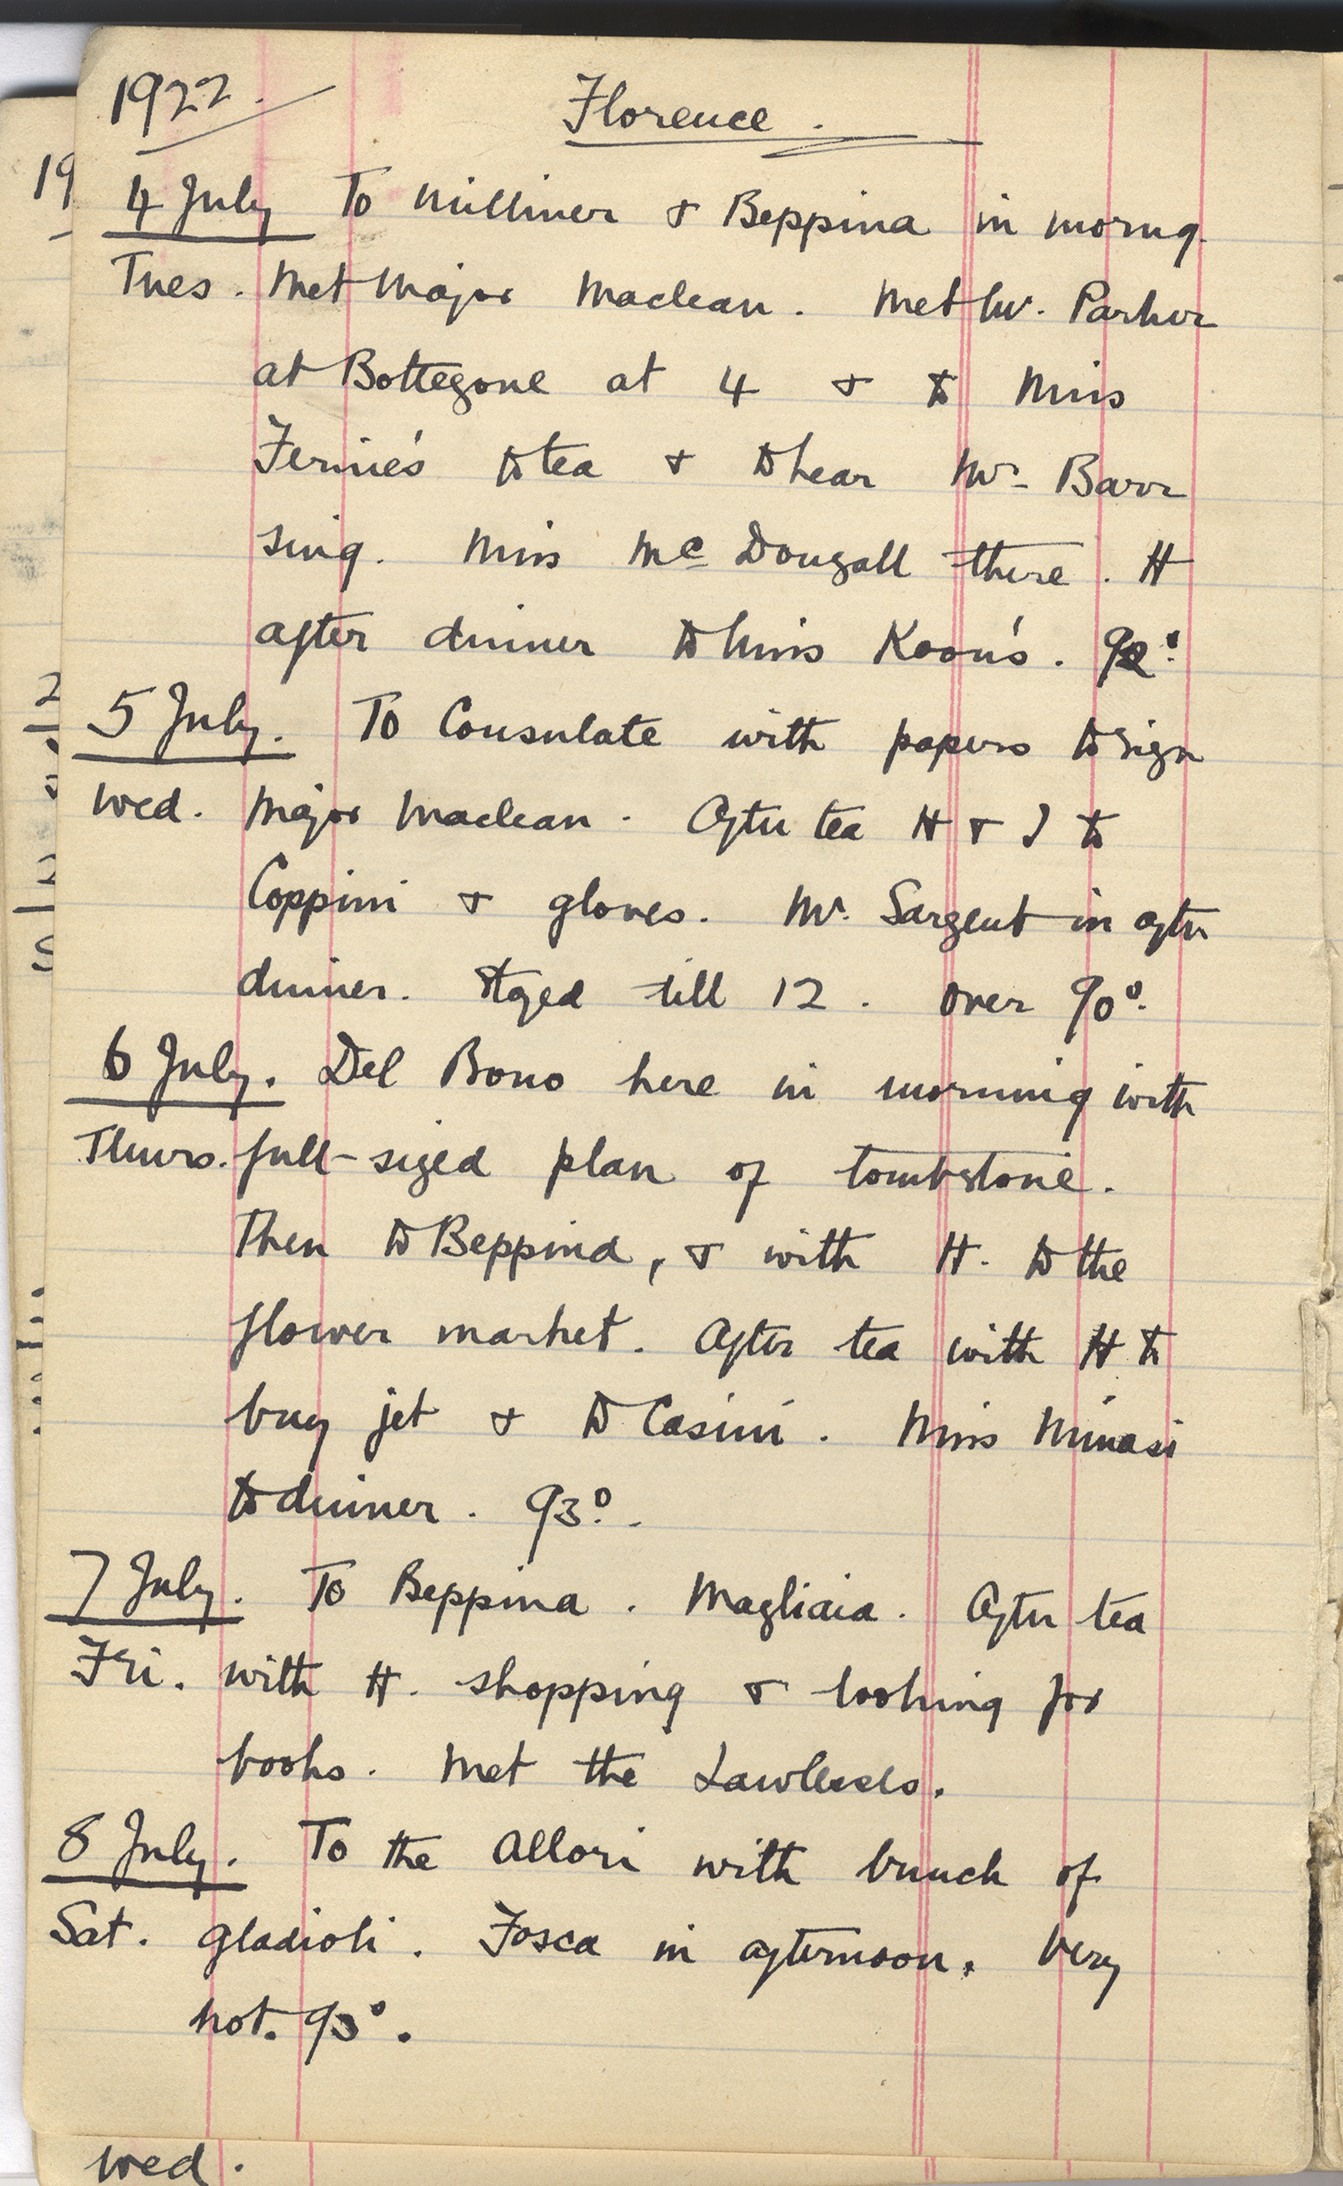 1922.
Florence.
4 July To milliner & Beppina in morng.
Tues. Met Major Maclean. Met Mr. Parker
at Bottegone at 4 & to Miss
Fernie's to tea & to hear Mr. Barr
sing. Miss Mc Dougall there. H
after dinner to Miss Koon's. 92°.
5 July. To Consulate with papers to sign
Wed. Major Maclean. After tea H & I to
Coppini & gloves. Mr. Sargent in after
dinner. Stayed till 12. Over 90°.
6 July. Del Bono here in morning with
Thurs. full-sized plan of tombstone.
Then to Beppina, & with H. to the
flower market. After tea with H to
buy jet & to Casini. Miss Minasi
to dinner. 93°.
7 July. To Beppina. Magliaia. After tea
Fri. with H. shopping & looking for
books. Met the
8 July. To the Allori with bunch of
Sat. gladioli. Fosca in afternoon. Very
hot. 93°.
Wed.
19
2